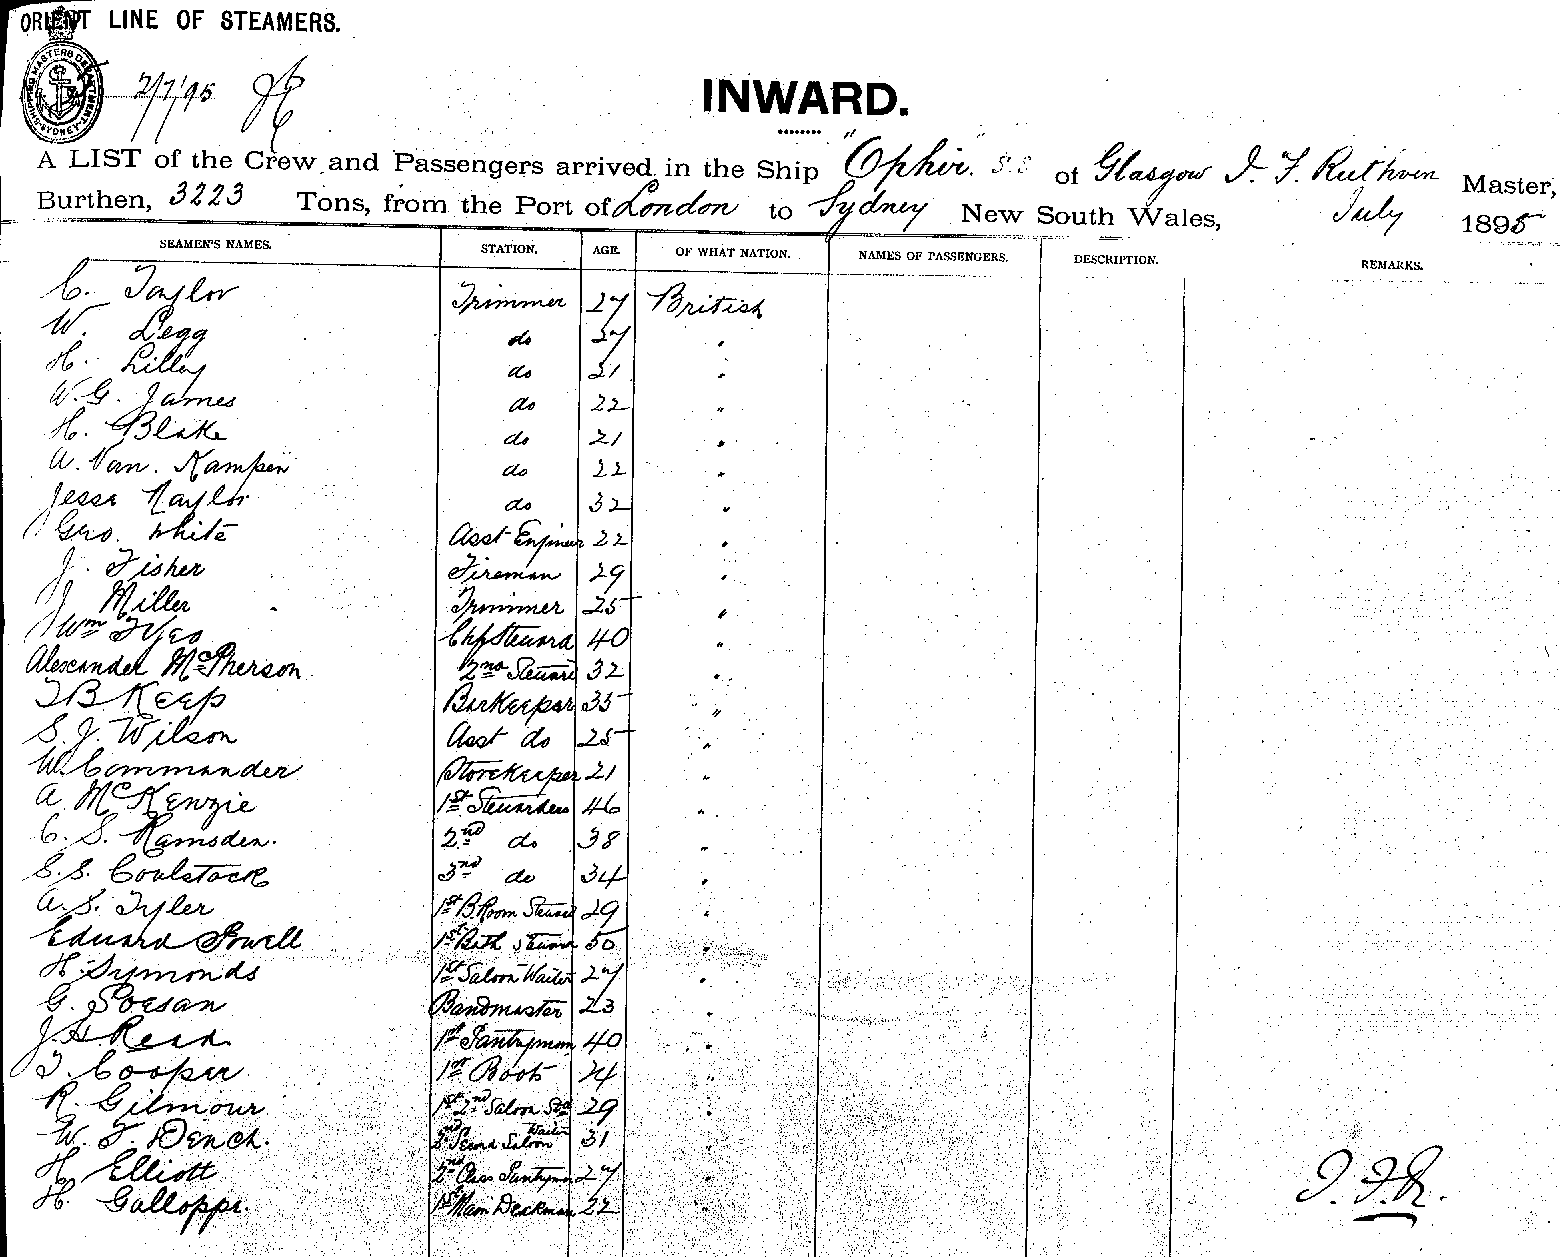 ORIENT LINE OF STEAMERS.
SHIPPING MASTERS DEPARTMENT SYDNEY
2/7/95
INWARD.
A LIST of the Crew and Passengers arrived in the Ship "Ophir" S.S of Glasgow J. F. Ruthven Master,
Burthen, 3223 Tons, from the Port of London to Sydney New South Wales, July 1895
SEAMEN'S NAMES. STATION. AGE. OF WHAT NATION. NAMES OF PASSENGERS. DESCRIPTION. REMARKS.
C. Taylor Trimmer 27 British
W. Legg do 27 "
H. Lilley do 21 "
W. G. James do 22 "
H. Blake do 21 "
A. Van. Kampen do 22 "
Jesse Naylor do 32 "
Geo. White Asst Engineer 22 "
J. Fisher Fireman 29 "
J. Miller Trimmer 25 "
Wm Steward 40 "
Alexander McPherson 2nd Steward 32 "
T B Keep Barkeeper 35 "
S. J. Wilson Asst do 25 "
W. Commander Storekeeper 21 "
A. McKenzie 1st Stewardess 46 "
C. S. Ramsden. 2nd do 38 "
S. S. Coulstock 3rd do 34 "
A. S. Tyler 1st B. Room Steward 29 "
Edward Powell 1st Bath Steward 50 "
H. Symonds 1st Saloon Waiter 27 "
G. Bandmaster 23 "
J. H Read 1st Pantryman 40 "
T. Cooper 1st Boots 24 "
R. Gilmour 1st 2nd Saloon Std 29 "
W. F. Dench. 2nd Saloon Waiter 31 "
H Elliott 2nd Class Pantryman 27 "
H Galloppi. 1st Deckman 22 "
J. F. R.